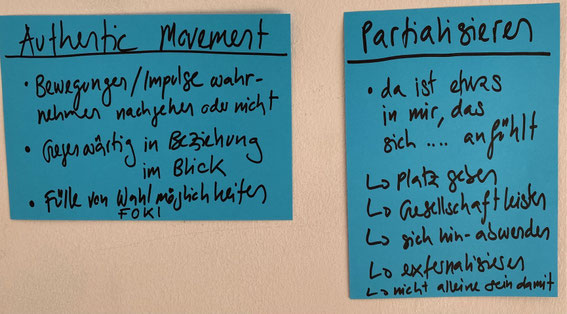 Authentic Movement
• Bewegungen/Impulse wahr-
nehmen nachgehen oder nicht
• Gegenwärtig in Beziehung
im Blick
• Fülle von Wahlmöglichkeiten
FOKI
Partialisieren
• da ist etwas
in mir, das
sich .... anfühlt
↳ Platz geben
↳ Gesellschaft leisten
↳ sich hin-abwenden
↳ externalisieren
↳ nicht alleine sein damit